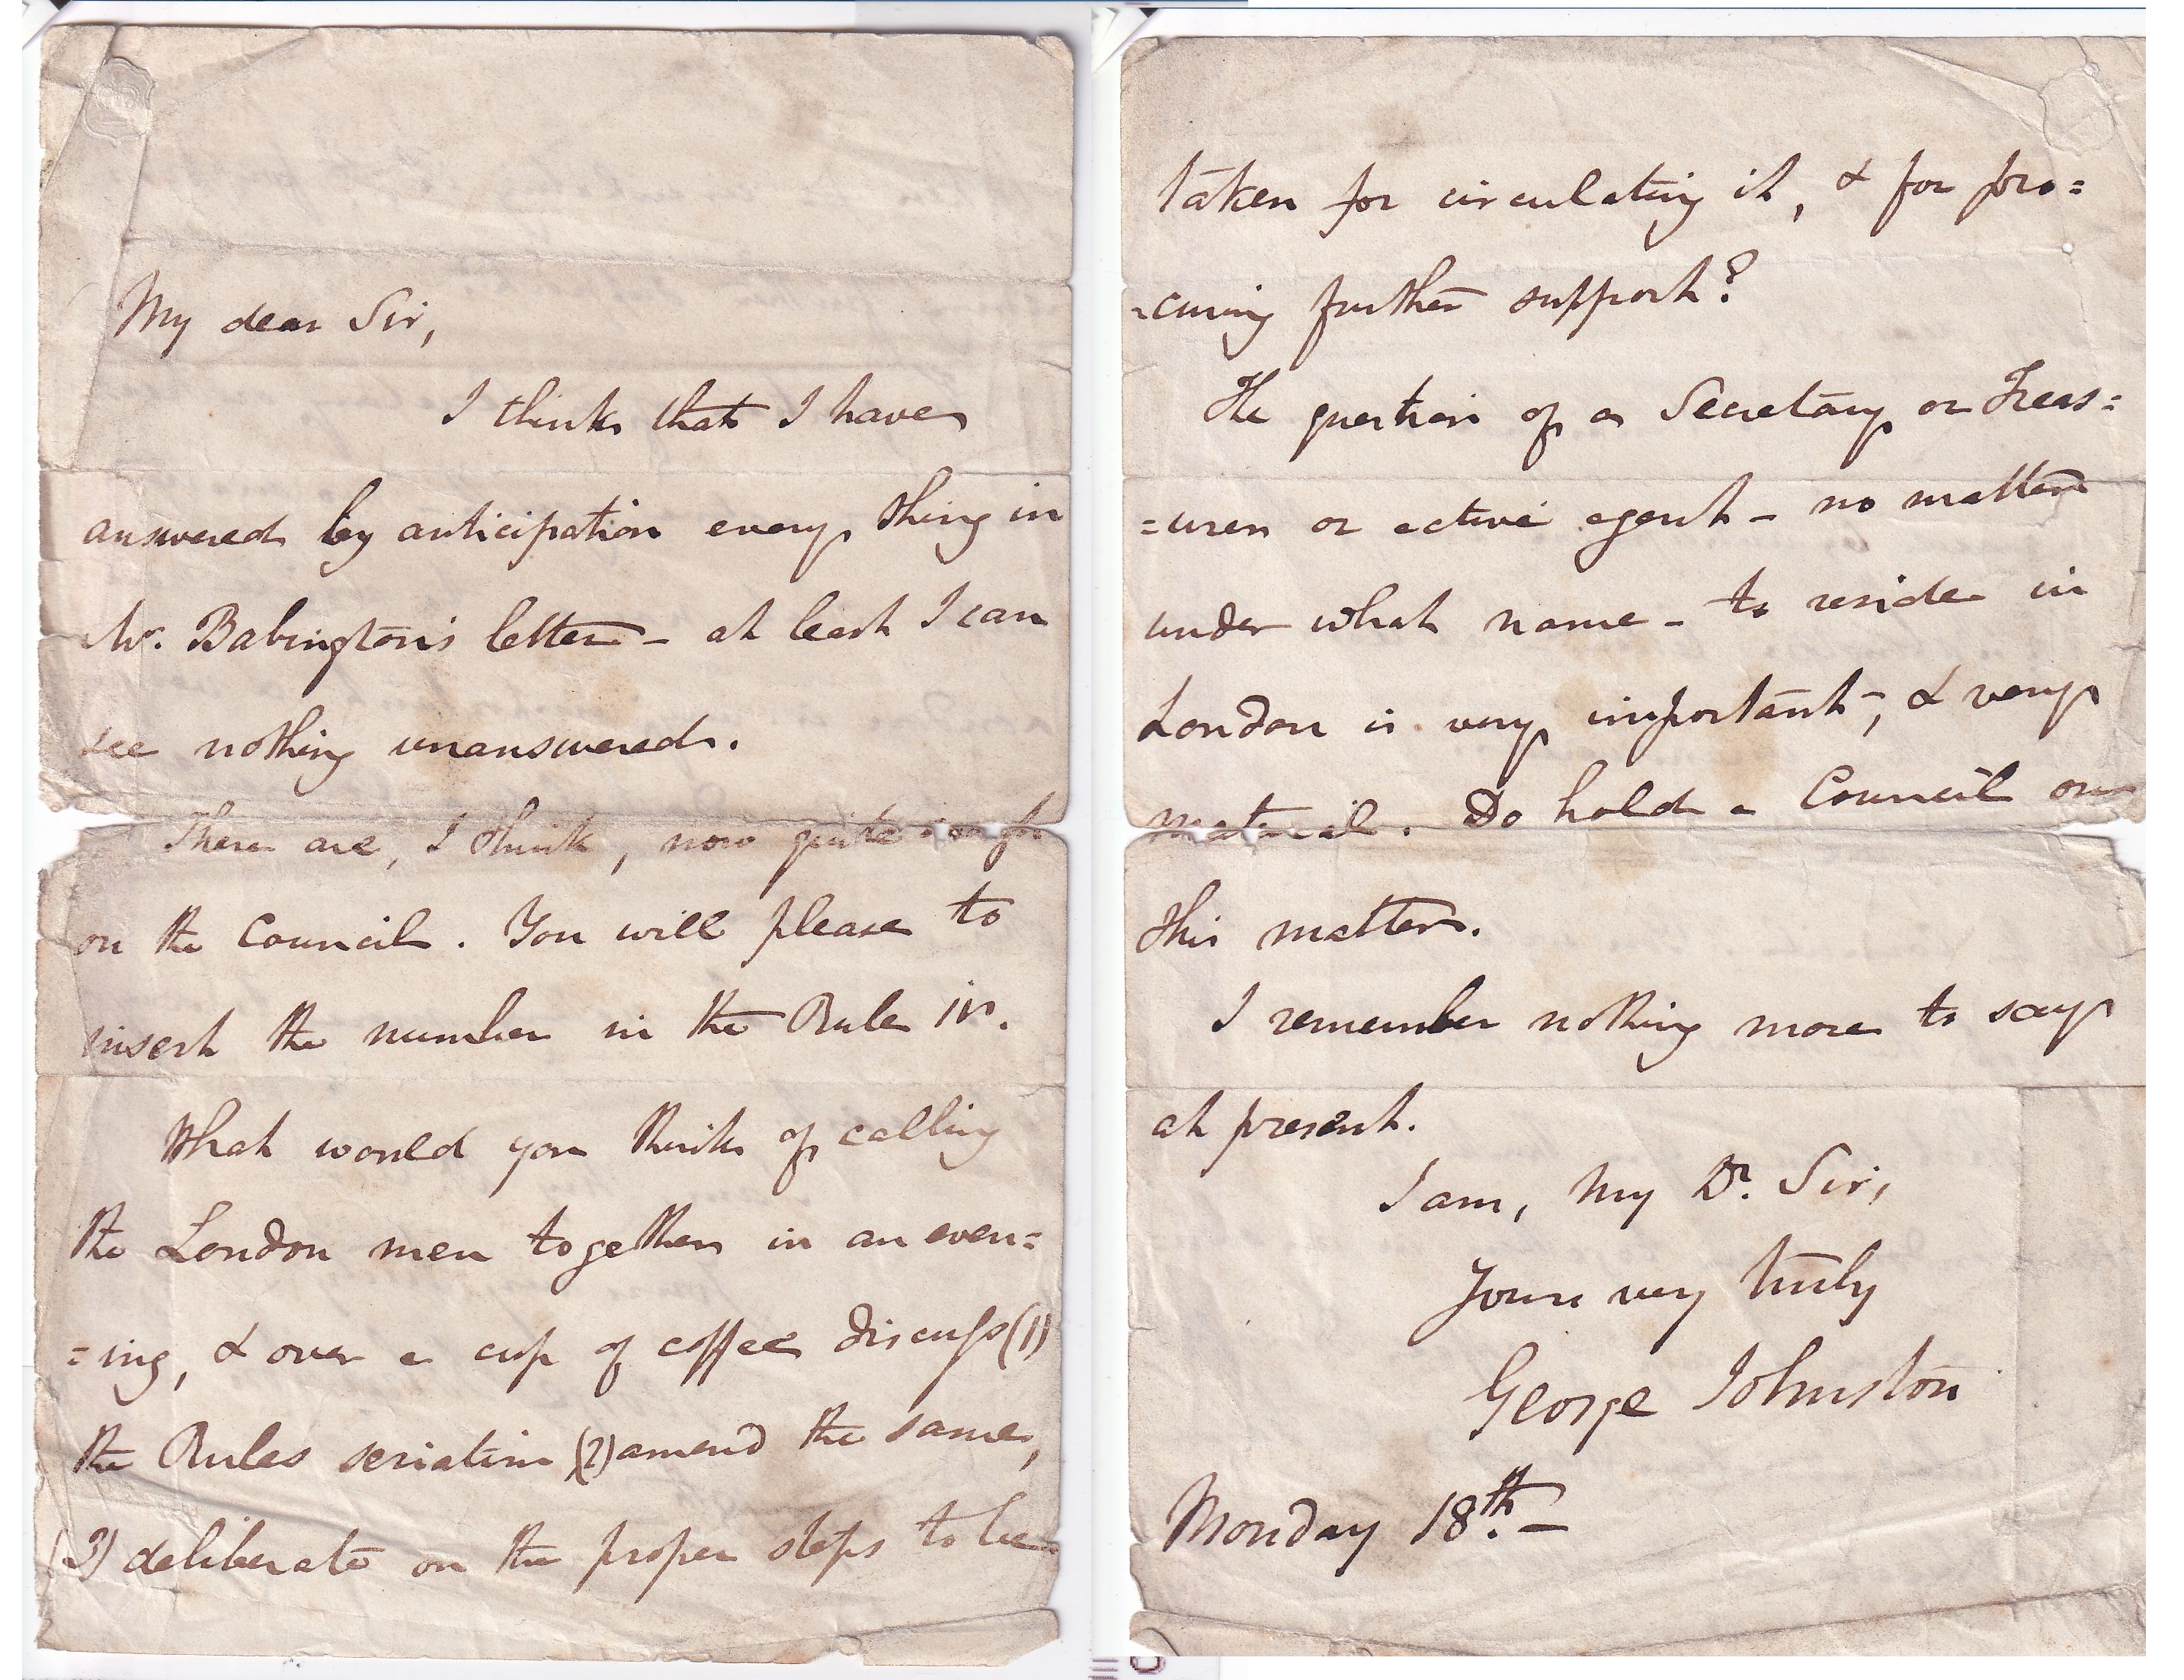 My dear Sir,
I think that I have
answered by anticipation every thing in
Mr. Babington's letter – at least I can
see nothing unanswered.
There are, I think, now quite
on the Council. You will please to
insert the number in the Rule iv.
What would you think of calling
the London men together in an even=
=ing, & over a cup of coffee discuss (1)
the Rules seriatim (2) amend the same,
(3) deliberate on the proper steps to be
taken for circulating it, & for pro=
=curing further support?
The question of a Secretary or Treas=
=urer or active agent – no matter
under what name – to reside in
London is very important, & very
material. Do hold a Council on
this matter.
I remember nothing more to say
at present.
I am, My Dr. Sir,
Yours very truly
George Johnston
Monday 18th. –